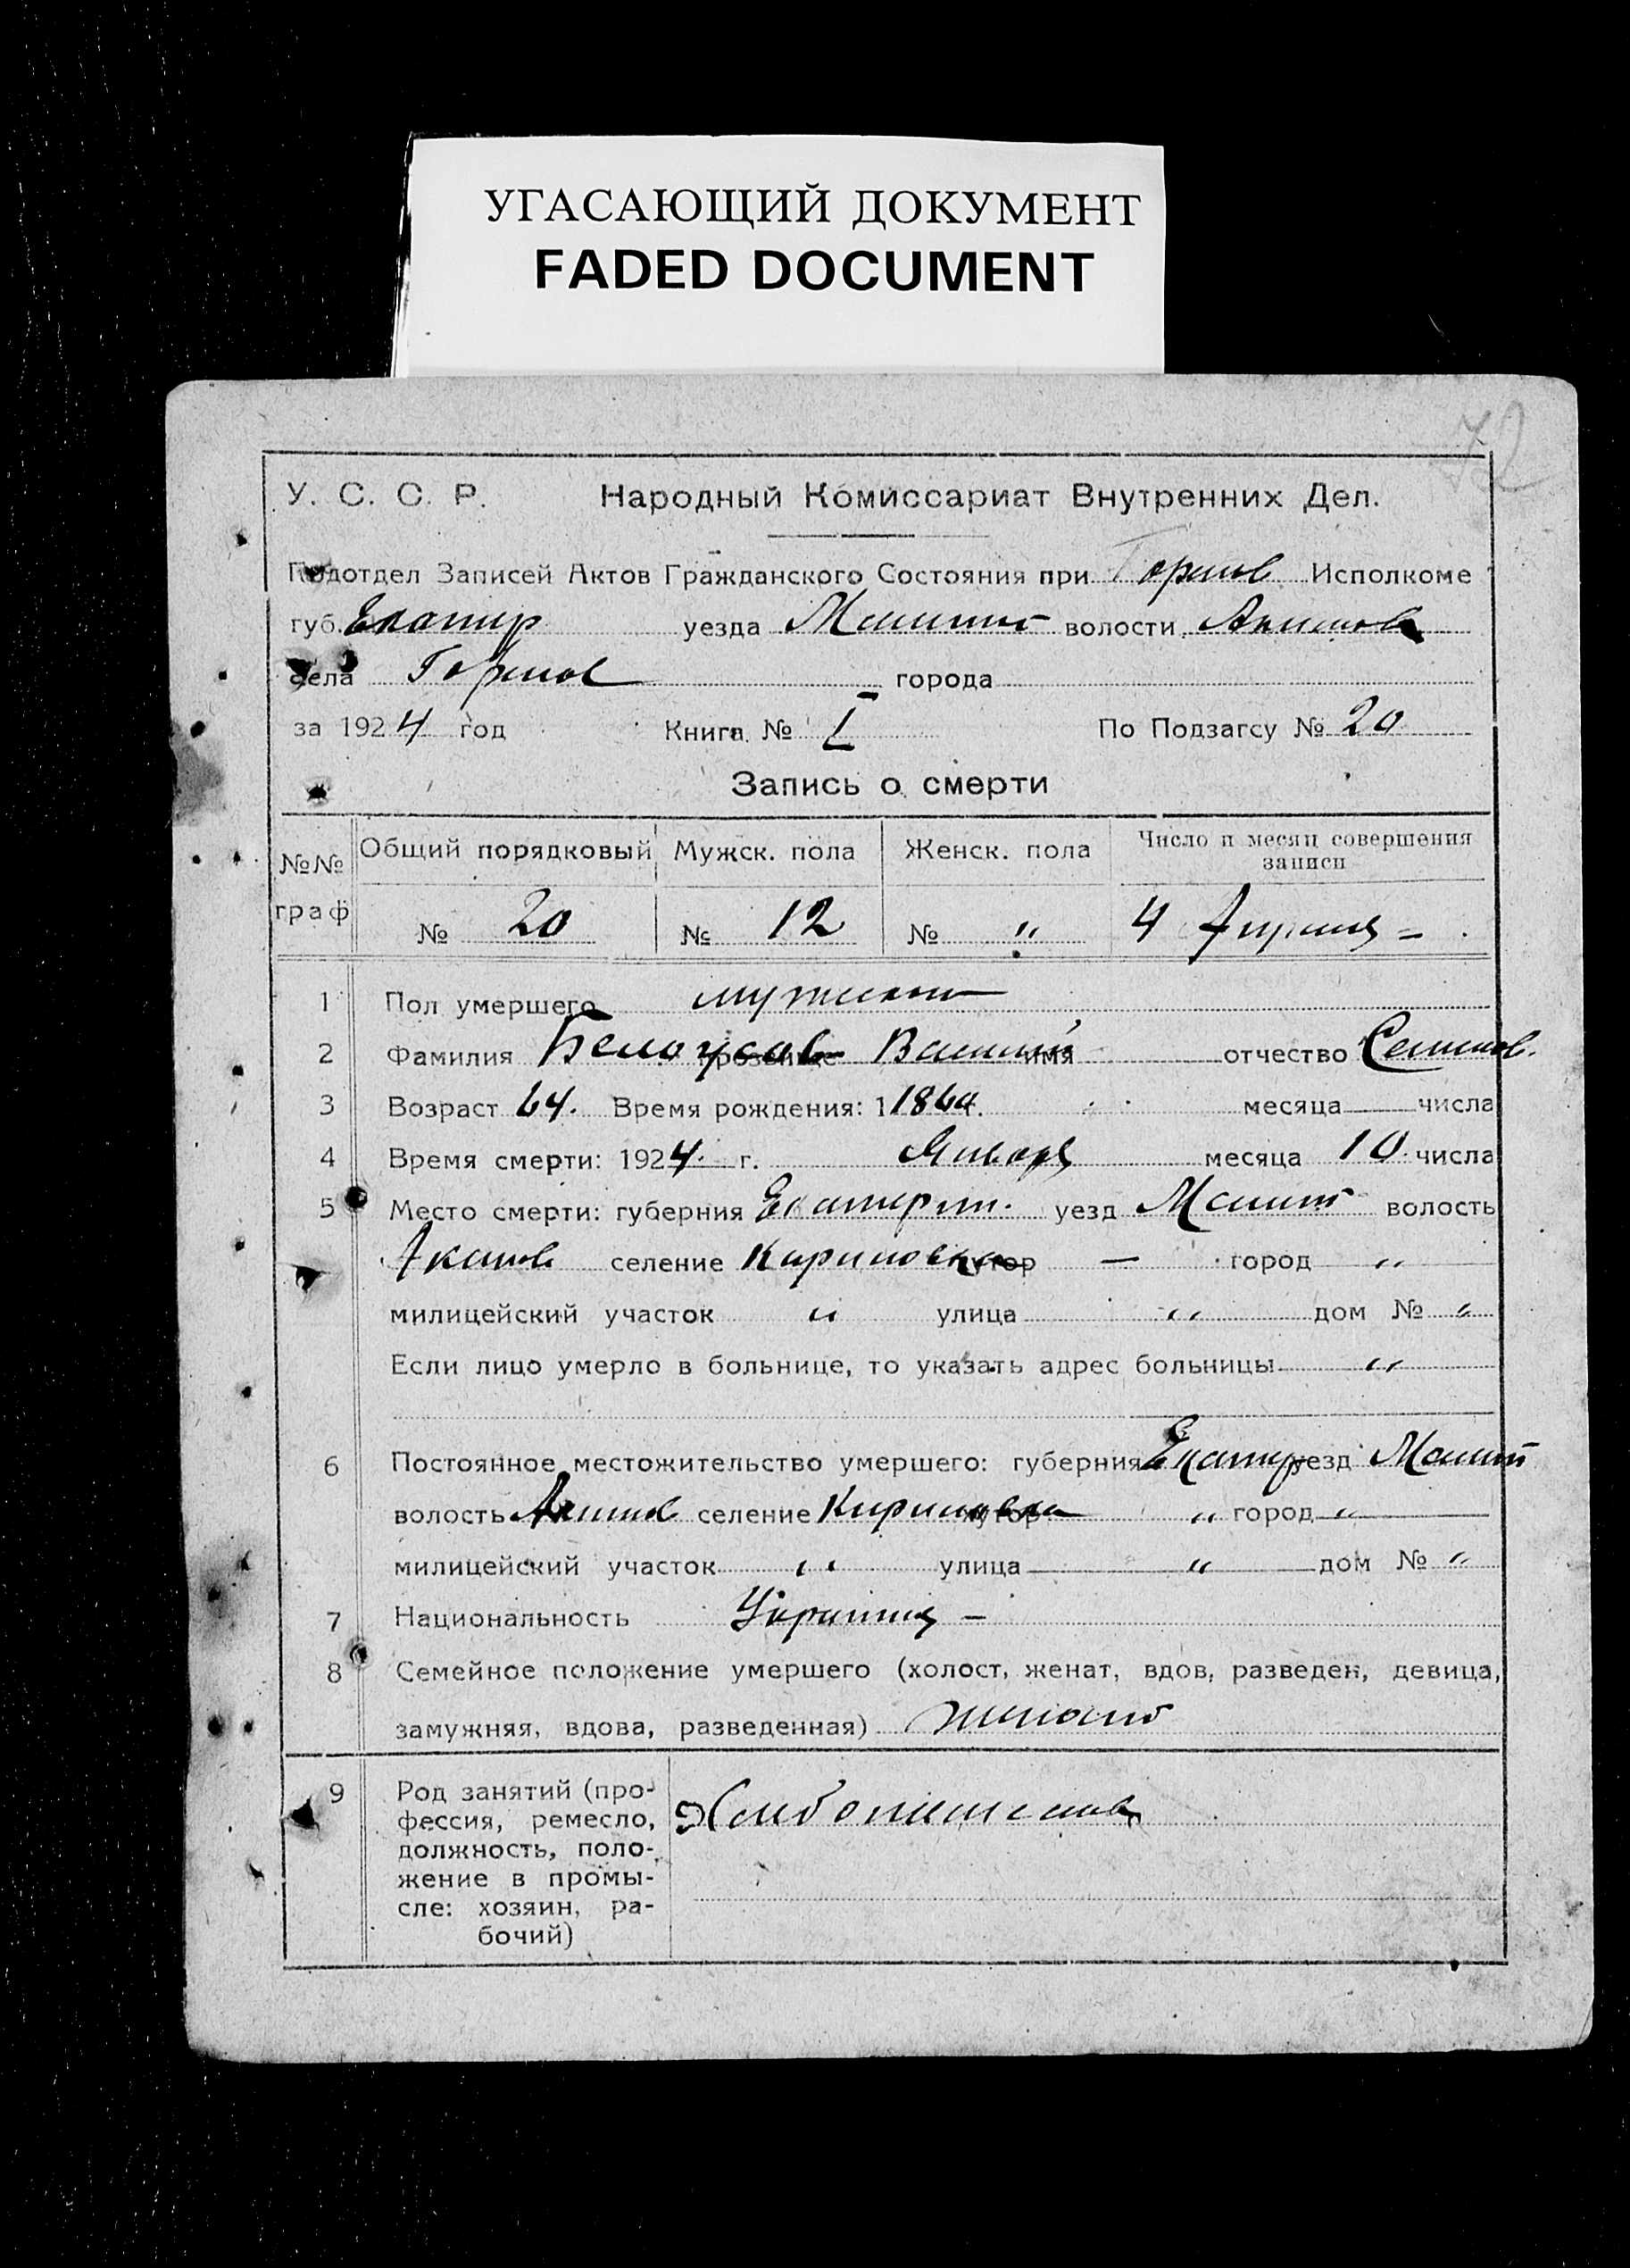 УГАСАЮЩИЙ ДОКУМЕНТ
FADED DOCUMENT
72
У. С. С. Р. Народный Комиссариат Внутренних Дел.
Подотдел Записей Актов Гражданского Состояния при Исполкоме
губ. Екатер уезда Мелит волости Акимов
села города
за 1924 год Книга № I По Подзагсу № 20
Запись о смерти
№№ граф Общий порядковый Мужск. пола Женск. пола Число и месяц совершения записи
№ 20 № 12 № " 4 Апреля
1 Пол умершего мужской
2 Фамилия Белоусов прозвище Василий имя отчество Семенов.
3 Возраст 64. Время рождения: 1 1860. месяца числа
4 Время смерти: 1924 г. Января месяца 10 числа
5 Место смерти: губерния Екатерин. уезд Мелит волость
Акимов селение Кириловка хутор — город "
милицейский участок " улица " дом № "
Если лицо умерло в больнице, то указать адрес больницы "
6 Постоянное местожительство умершего: губерния Екатер уезд Мелит
волость Акимов селение Кириловка хутор " город "
милицейский участок " улица " дом № "
7 Национальность
8 Семейное положение умершего (холост, женат, вдов, разведен, девица,
замужняя, вдова, разведенная) женат
9 Род занятий (про-
фессия, ремесло,
должность, поло-
жение в промы-
сле: хозяин, ра-
бочий)